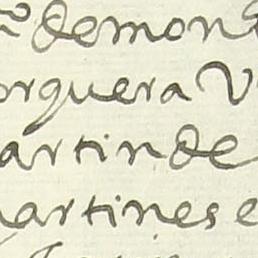 demon
orquera v
artin de
martines e